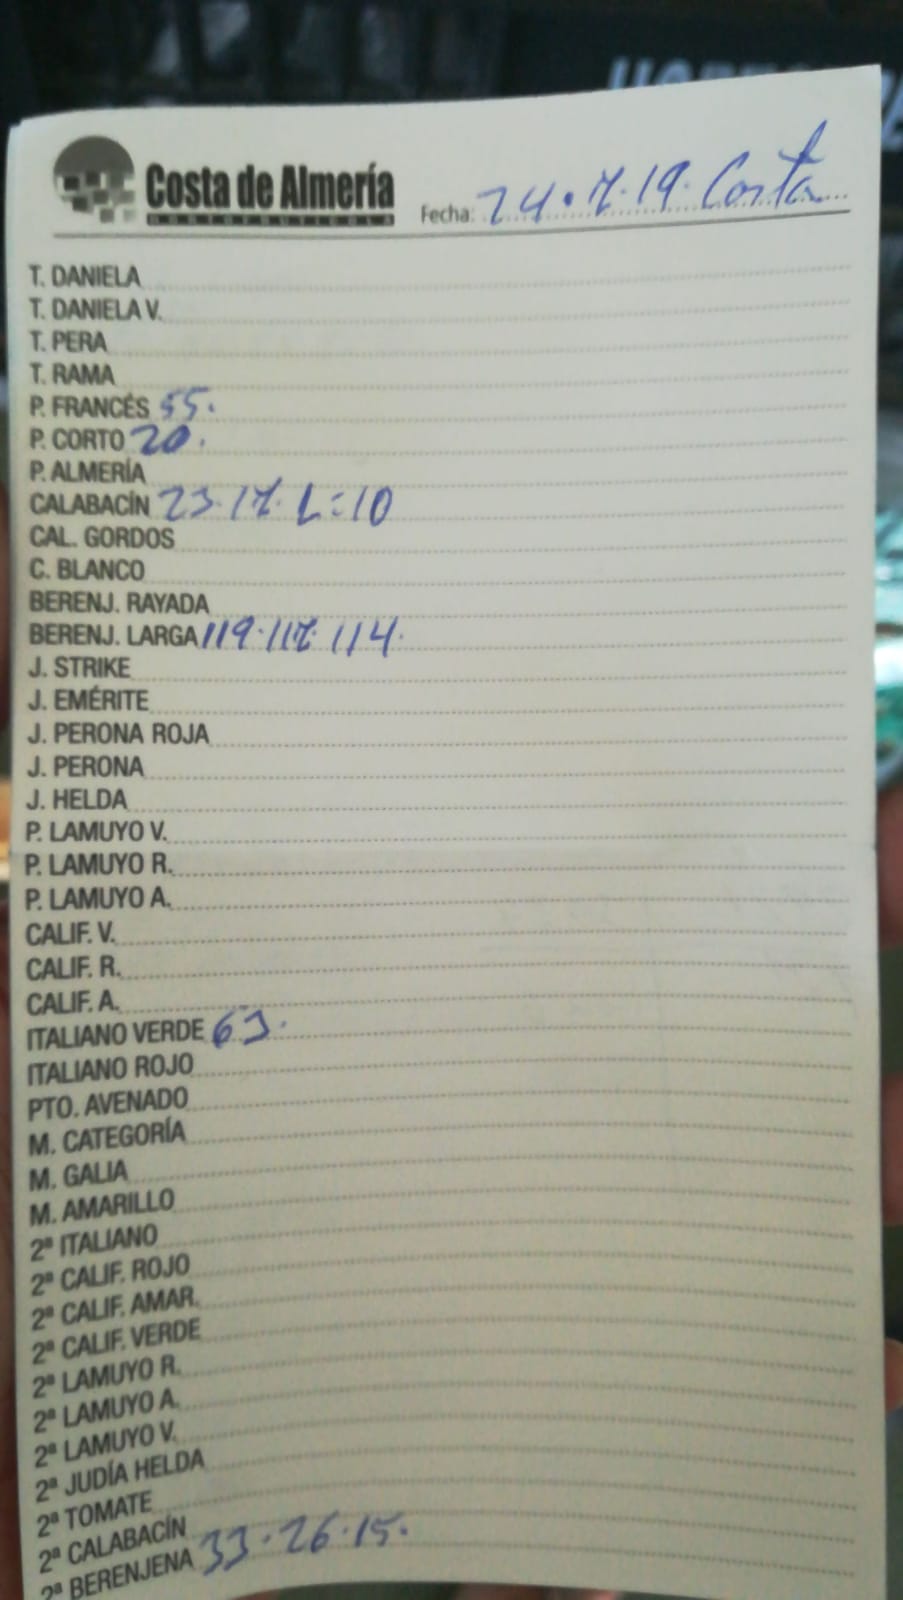 Costa de Almería
HORTOFRUTÍCOLA
Fecha: 24.7.19. Costa
T. DANIELA
T. DANIELA V.
T. PERA
T. RAMA
P. FRANCÉS 55.
P. CORTO 20.
P. ALMERÍA
CALABACÍN 23.17. L=10
CAL. GORDOS
C. BLANCO
BERENJ. RAYADA
BERENJ. LARGA 119.117.114.
J. STRIKE
J. EMÉRITE
J. PERONA ROJA
J. PERONA
J. HELDA
P. LAMUYO V.
P. LAMUYO R.
P. LAMUYO A.
CALIF. V.
CALIF. R.
CALIF. A.
ITALIANO VERDE 63.
ITALIANO ROJO
PTO. AVENADO
M. CATEGORÍA
M. GALIA
M. AMARILLO
2ª ITALIANO
2ª CALIF. ROJO
2ª CALIF. AMAR.
2ª CALIF. VERDE
2ª LAMUYO R.
2ª LAMUYO A.
2ª LAMUYO V.
2ª JUDÍA HELDA
2ª TOMATE
2ª CALABACÍN
2ª BERENJENA 33.26.15.